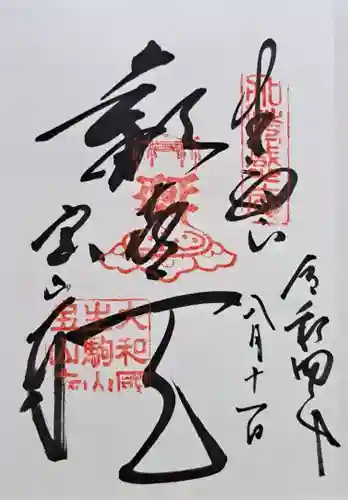 奉拝
令和四年
八月十一日
歓喜天
宝山寺
大和國
生駒山
宝山寺